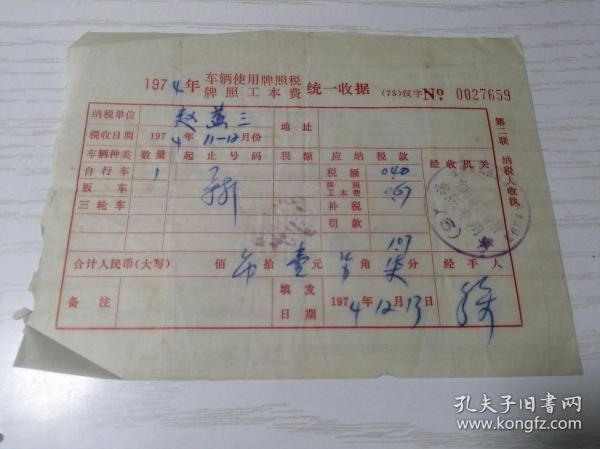 1974年 车辆使用牌照税 牌照工本费 统一收据 (73)汉字 № 0027659
纳税单位 赵燕三 地址
税收日期 1974年11-12月份
车辆种类 数量 起止号码 税额 应纳税款 经收机关
自行车 1 税额 0.40
板车 牌照工本费 0.67
三轮车 补税
罚款
1.07
合计人民币(大写) 佰 拾 壹元 角 柒分 经手人
备注 填发日期 1974年12月13日
第二联 纳税人收执
孔夫子旧书网
www.kongfz.com